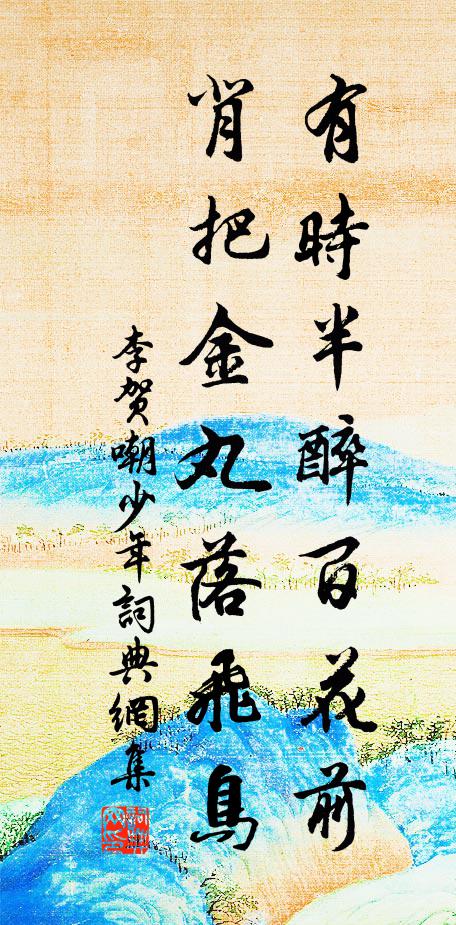 有時半醉百花前
背把金丸落飛鳥
李賀嘲少年詞典網集